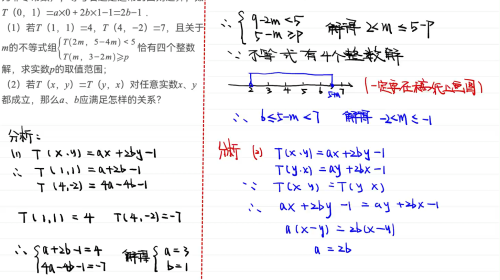 T(0, 1)=a×0+2b×1-1=2b-1.
(1) 若T(1, 1)=4, T(4, -2)=-7, 且关于
m的不等式组{T(2m, 5-4m)<5 恰有四个整数
T(m, 3-2m)≥p
解, 求实数p的取值范围;
(2) 若T(x, y)=T(y, x)对任意实数x、y
都成立, 那么a、b应满足怎样的关系?
分析:
(1) T(x,y)=ax+2by-1
∴ T(1,1)=a+2b-1
T(4,-2)=4a-4b-1
T(1,1)=4 T(4,-2)=-7
∴ {a+2b-1=4 解得 {a=3
4a-4b-1=-7 b=1
∴ {9-2m<5 解得 2<m≤5-p
5-m≥p
∵ 不等式有4个整数解
2 3 4 5 6 7
5-m
(一定要在稿纸上画图)
∴ 6≤5-m<7 解得 -2<m≤-1
分析 (2) T(x,y)=ax+2by-1
T(y,x)=ay+2bx-1
∵ T(x y)=T(y x)
∴ ax+2by-1=ay+2bx-1
a(x-y)=2b(x-y)
a=2b